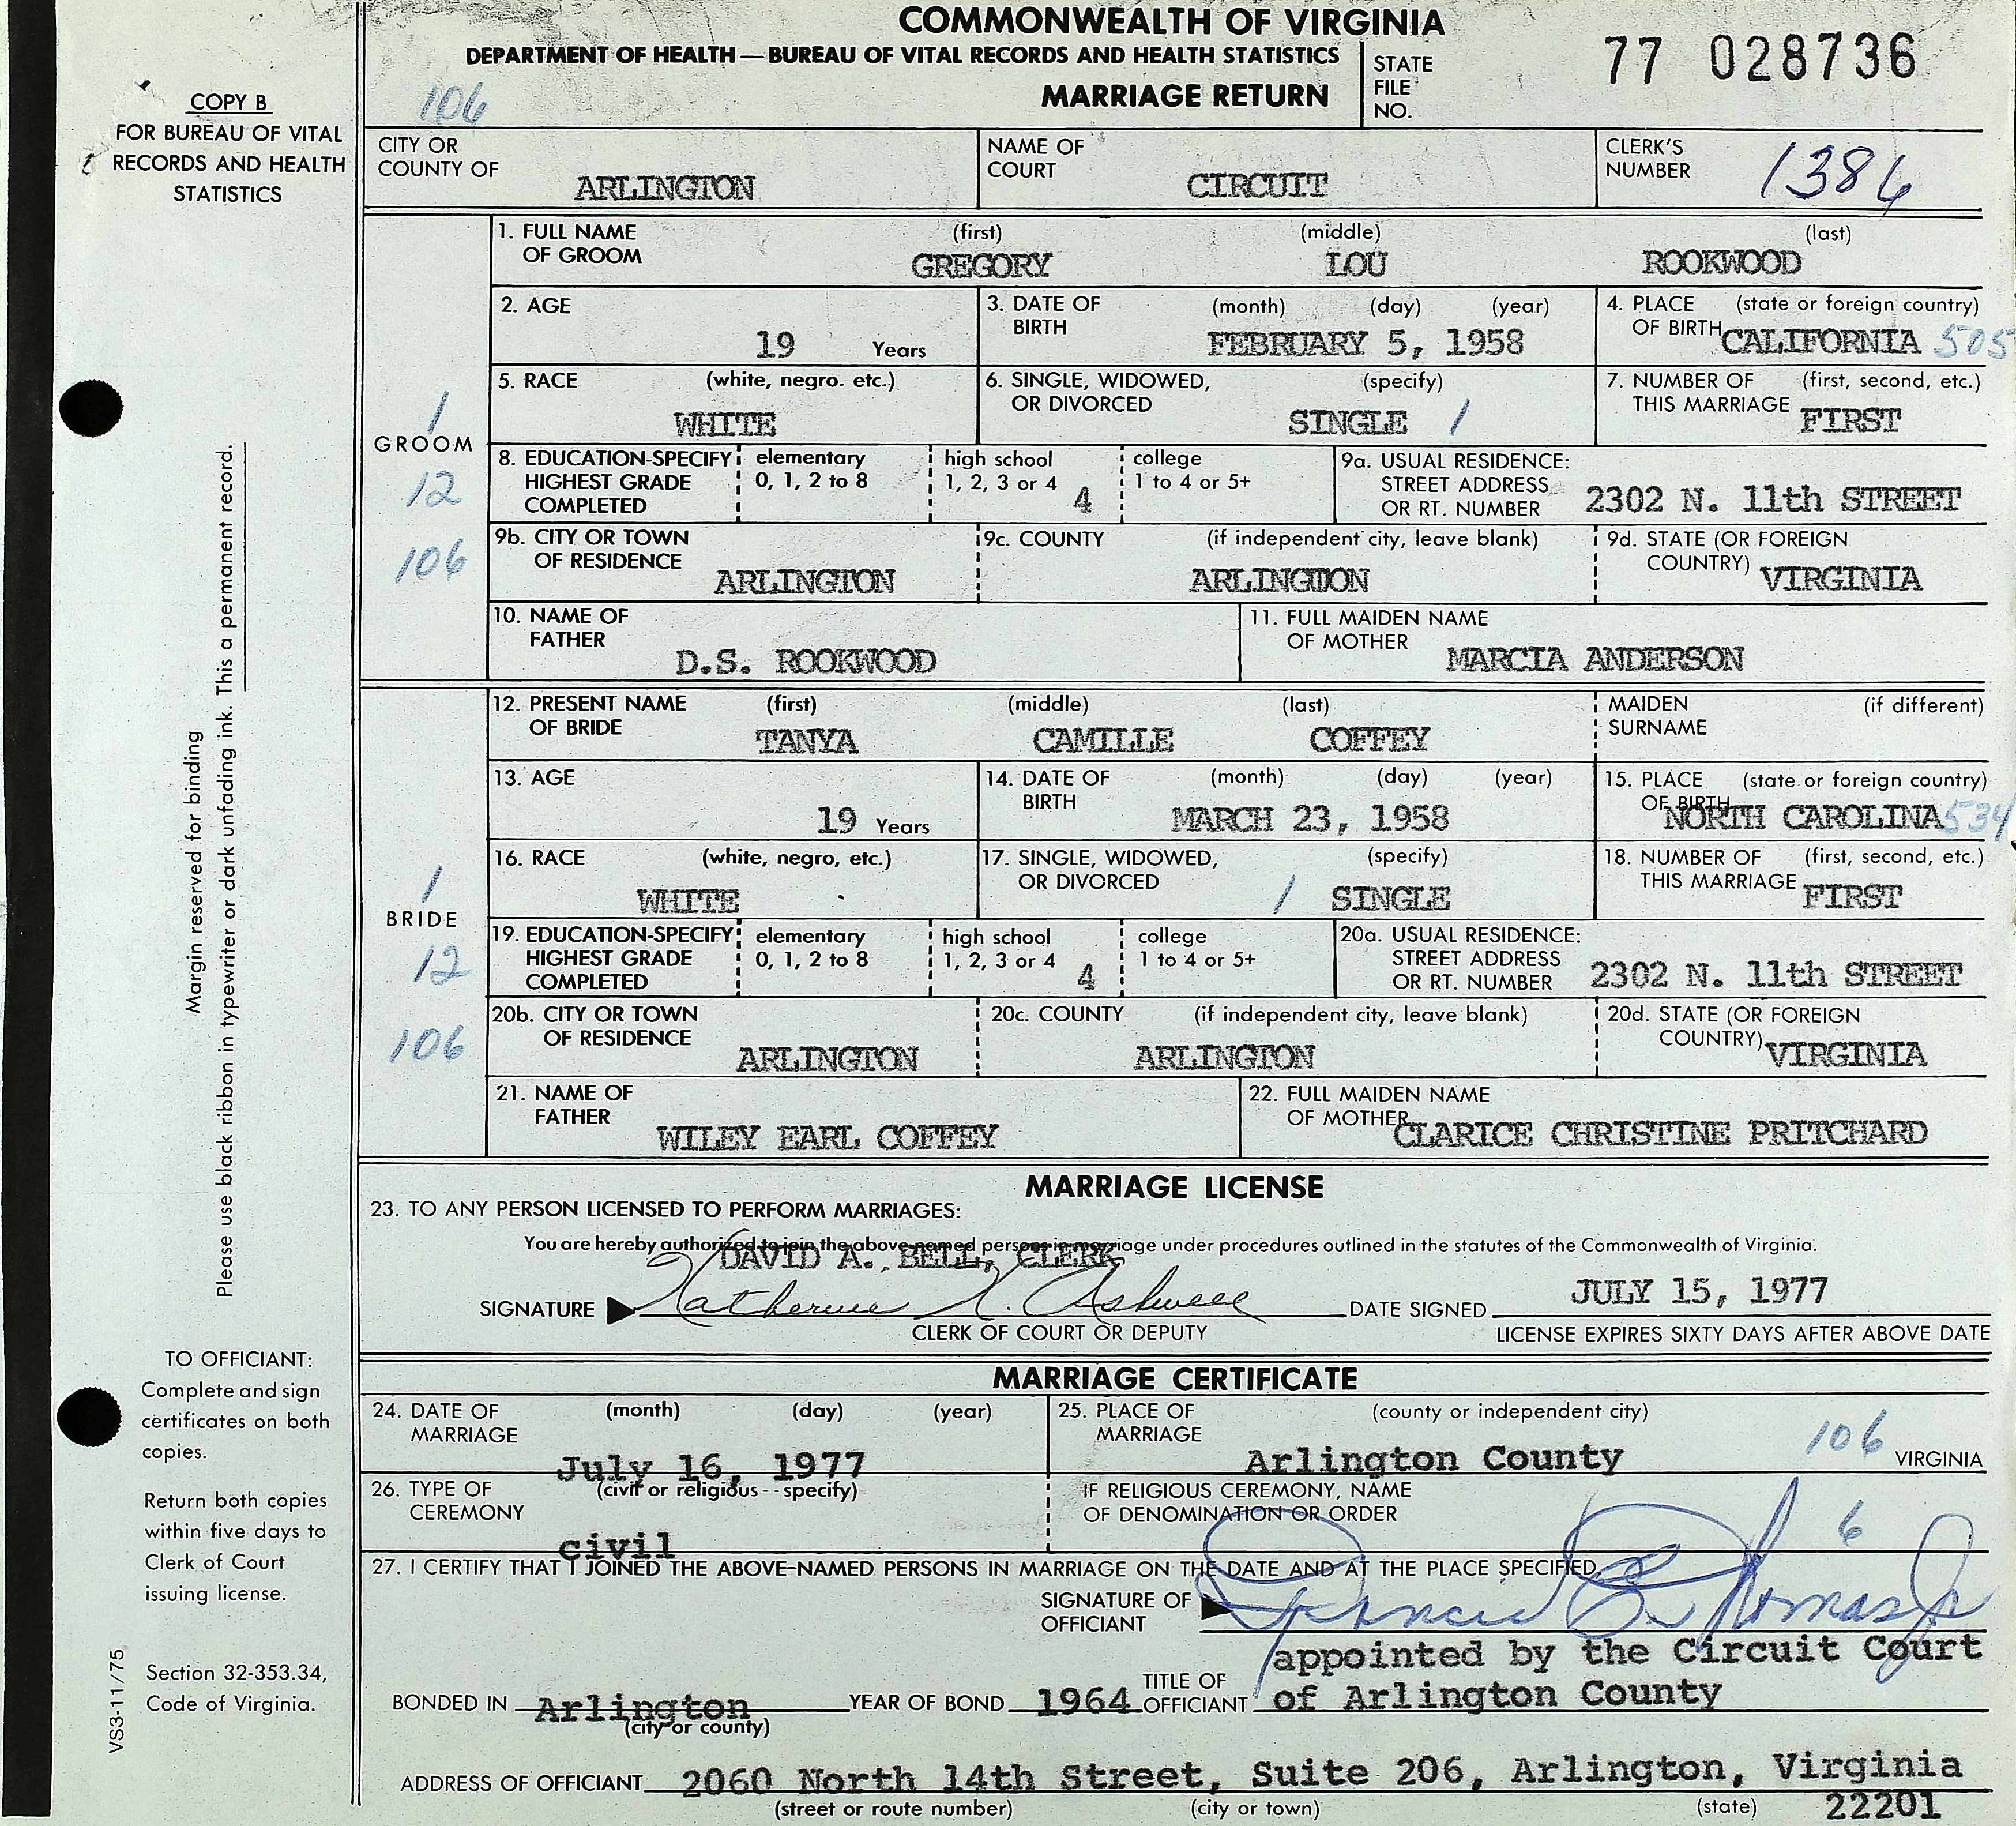 COMMONWEALTH OF VIRGINIA
DEPARTMENT OF HEALTH—BUREAU OF VITAL RECORDS AND HEALTH STATISTICS
MARRIAGE RETURN
STATE FILE NO. 77 028736
106
COPY B
FOR BUREAU OF VITAL
RECORDS AND HEALTH
STATISTICS
CITY OR COUNTY OF ARLINGTON
NAME OF COURT CIRCUIT
CLERK'S NUMBER 1386
Margin reserved for binding
Please use black ribbon in typewriter or dark unfading ink. This a permanent record.
1
GROOM
12
106
1. FULL NAME OF GROOM (first) GREGORY (middle) LOU (last) ROOKWOOD
2. AGE 19 Years
3. DATE OF BIRTH (month) (day) (year) FEBRUARY 5, 1958
4. PLACE OF BIRTH (state or foreign country) CALIFORNIA 505
5. RACE (white, negro. etc.) WHITE
6. SINGLE, WIDOWED, OR DIVORCED (specify) SINGLE 1
7. NUMBER OF THIS MARRIAGE (first, second, etc.) FIRST
8. EDUCATION-SPECIFY HIGHEST GRADE COMPLETED elementary 0, 1, 2 to 8 high school 1, 2, 3 or 4 4 college 1 to 4 or 5+
9a. USUAL RESIDENCE: STREET ADDRESS OR RT. NUMBER 2302 N. 11th STREET
9b. CITY OR TOWN OF RESIDENCE ARLINGTON
9c. COUNTY (if independent city, leave blank) ARLINGTON
9d. STATE (OR FOREIGN COUNTRY) VIRGINIA
10. NAME OF FATHER D.S. ROOKWOOD
11. FULL MAIDEN NAME OF MOTHER MARCIA ANDERSON
1
BRIDE
12
106
12. PRESENT NAME OF BRIDE (first) TANYA (middle) CAMILLE (last) COFFEY
MAIDEN SURNAME (if different)
13. AGE 19 Years
14. DATE OF BIRTH (month) (day) (year) MARCH 23, 1958
15. PLACE OF BIRTH (state or foreign country) NORTH CAROLINA 534
16. RACE (white, negro, etc.) WHITE
17. SINGLE, WIDOWED, OR DIVORCED (specify) 1 SINGLE
18. NUMBER OF THIS MARRIAGE (first, second, etc.) FIRST
19. EDUCATION-SPECIFY HIGHEST GRADE COMPLETED elementary 0, 1, 2 to 8 high school 1, 2, 3 or 4 4 college 1 to 4 or 5+
20a. USUAL RESIDENCE: STREET ADDRESS OR RT. NUMBER 2302 N. 11th STREET
20b. CITY OR TOWN OF RESIDENCE ARLINGTON
20c. COUNTY (if independent city, leave blank) ARLINGTON
20d. STATE (OR FOREIGN COUNTRY) VIRGINIA
21. NAME OF FATHER WILEY EARL COFFEY
22. FULL MAIDEN NAME OF MOTHER CLARICE CHRISTINE PRITCHARD
MARRIAGE LICENSE
23. TO ANY PERSON LICENSED TO PERFORM MARRIAGES:
You are hereby authorized to join the above-named persons in marriage under procedures outlined in the statutes of the Commonwealth of Virginia.
DAVID A. BELL, CLERK
SIGNATURE Katherine K. Ashwell DATE SIGNED JULY 15, 1977
CLERK OF COURT OR DEPUTY
LICENSE EXPIRES SIXTY DAYS AFTER ABOVE DATE
MARRIAGE CERTIFICATE
24. DATE OF MARRIAGE (month) (day) (year) July 16, 1977
25. PLACE OF MARRIAGE (county or independent city) Arlington County 106 VIRGINIA
26. TYPE OF CEREMONY (civil or religious--specify) civil
IF RELIGIOUS CEREMONY, NAME OF DENOMINATION OR ORDER 6
27. I CERTIFY THAT I JOINED THE ABOVE-NAMED PERSONS IN MARRIAGE ON THE DATE AND AT THE PLACE SPECIFIED
SIGNATURE OF OFFICIANT Francis E. Thomas Jr
BONDED IN Arlington (city or county) YEAR OF BOND 1964
TITLE OF OFFICIANT appointed by the Circuit Court of Arlington County
ADDRESS OF OFFICIANT 2060 North 14th Street, Suite 206, Arlington, Virginia
(street or route number) (city or town) (state) 22201
TO OFFICIANT:
Complete and sign
certificates on both
copies.
Return both copies
within five days to
Clerk of Court
issuing license.
Section 32-353.34,
Code of Virginia.
VS3-11/75